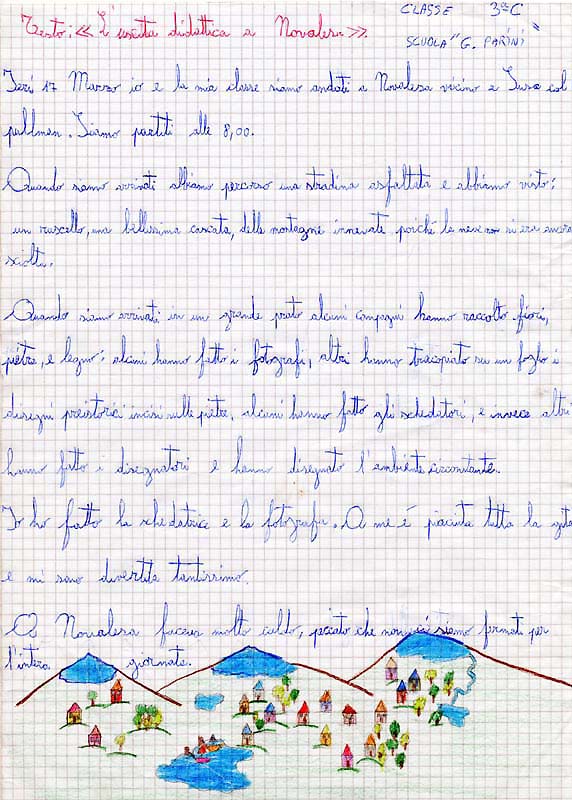 Testo: << L'uscita didattica a Novalesa >>.
CLASSE 3ª C
SCUOLA "G. PARINI"
Ieri 17 Marzo io e la mia classe siamo andati a Novalesa vicino a Susa col
pullman. Siamo partiti alle 8,00.
Quando siamo arrivati abbiamo percorso una stradina asfaltata e abbiamo visto:
un ruscello, una bellissima cascata, delle montagne innevate poiché la neve non si era ancora
sciolta.
Quando siamo arrivati in un grande prato alcuni compagni hanno raccolto fiori,
pietre, e legno: alcuni hanno fatto i fotografi, altri hanno tracopiato su un foglio i
disegni preistorici incisi sulle pietre, alcuni hanno fatto gli schedatori, e invece altri
hanno fatto i disegnatori e hanno disegnato l'ambiente circostante.
Io ho fatto la schedatrice e la fotografa. A me é piaciuta tutta la gita
e mi sono divertita tantissimo.
A Novalesa faceva molto caldo, peccato che non ci siamo fermati per
l'intera giornata.